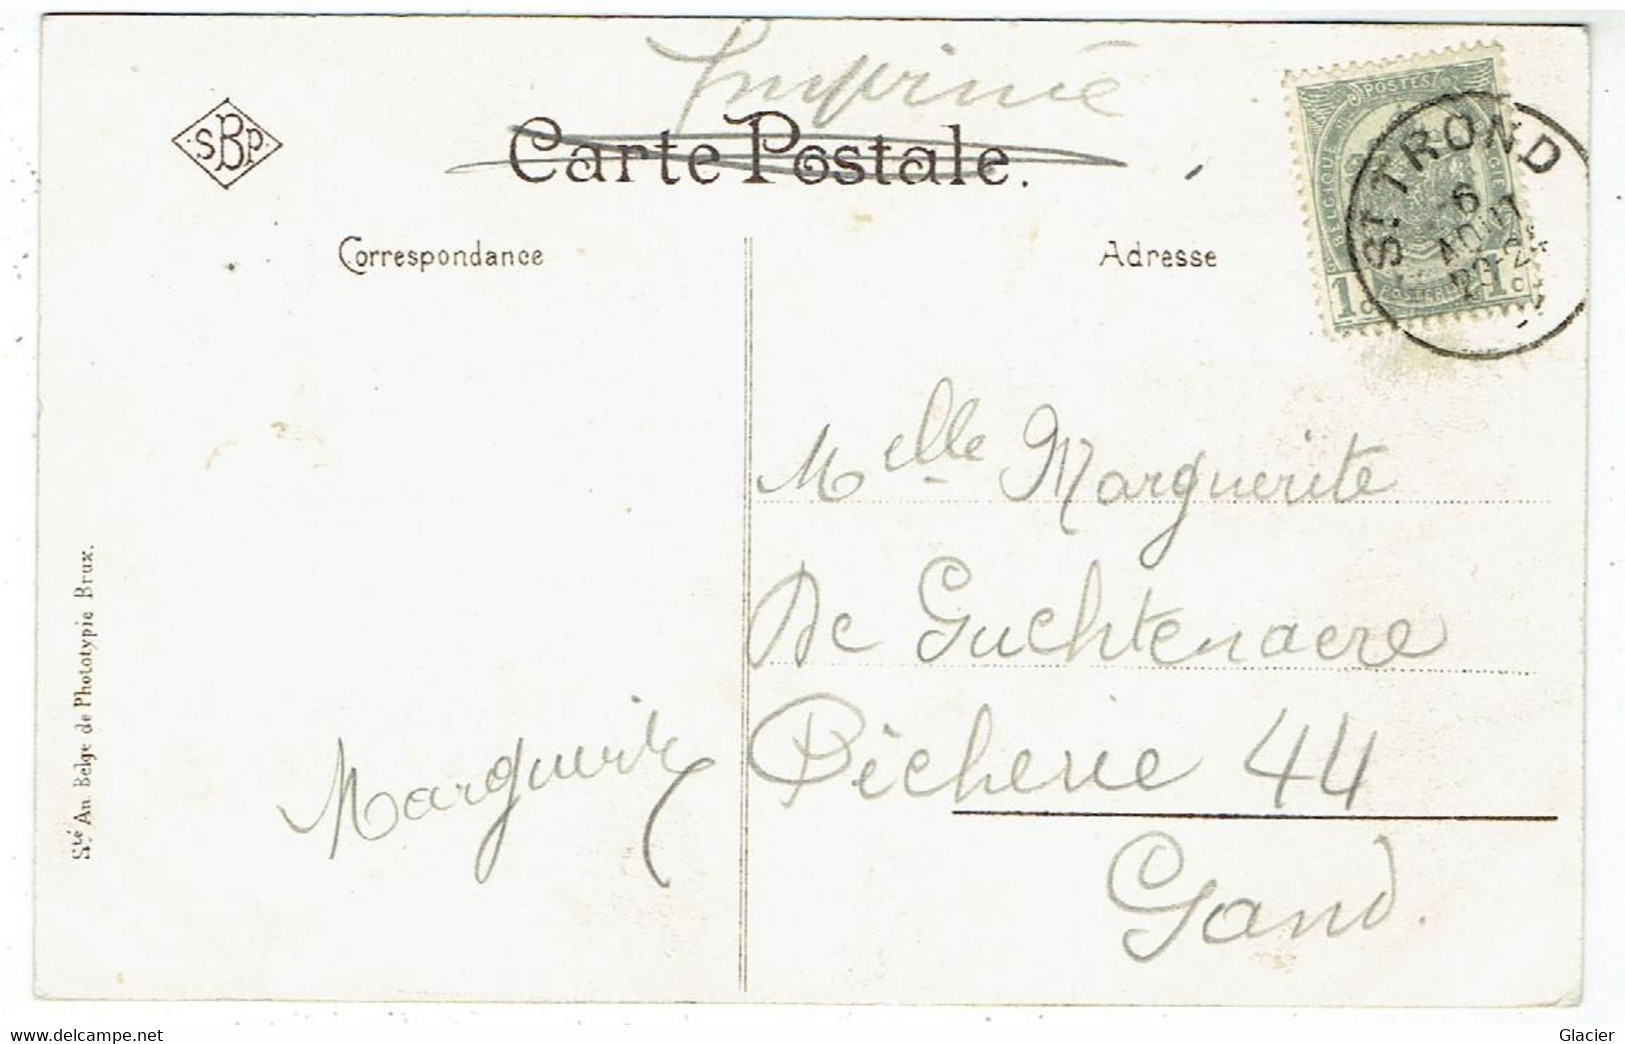 Imprimé
SBP
Carte Postale.
Correspondance
Adresse
POSTES
BELGIQUE
1c 1c
ST TROND
6
AOUT
Melle Marguerite
De Guchtenaere
Pêcherie 44
Gand.
Marguerite
Sté An. Belge de Phototypie Brux.
www.delcampe.net
Glacier